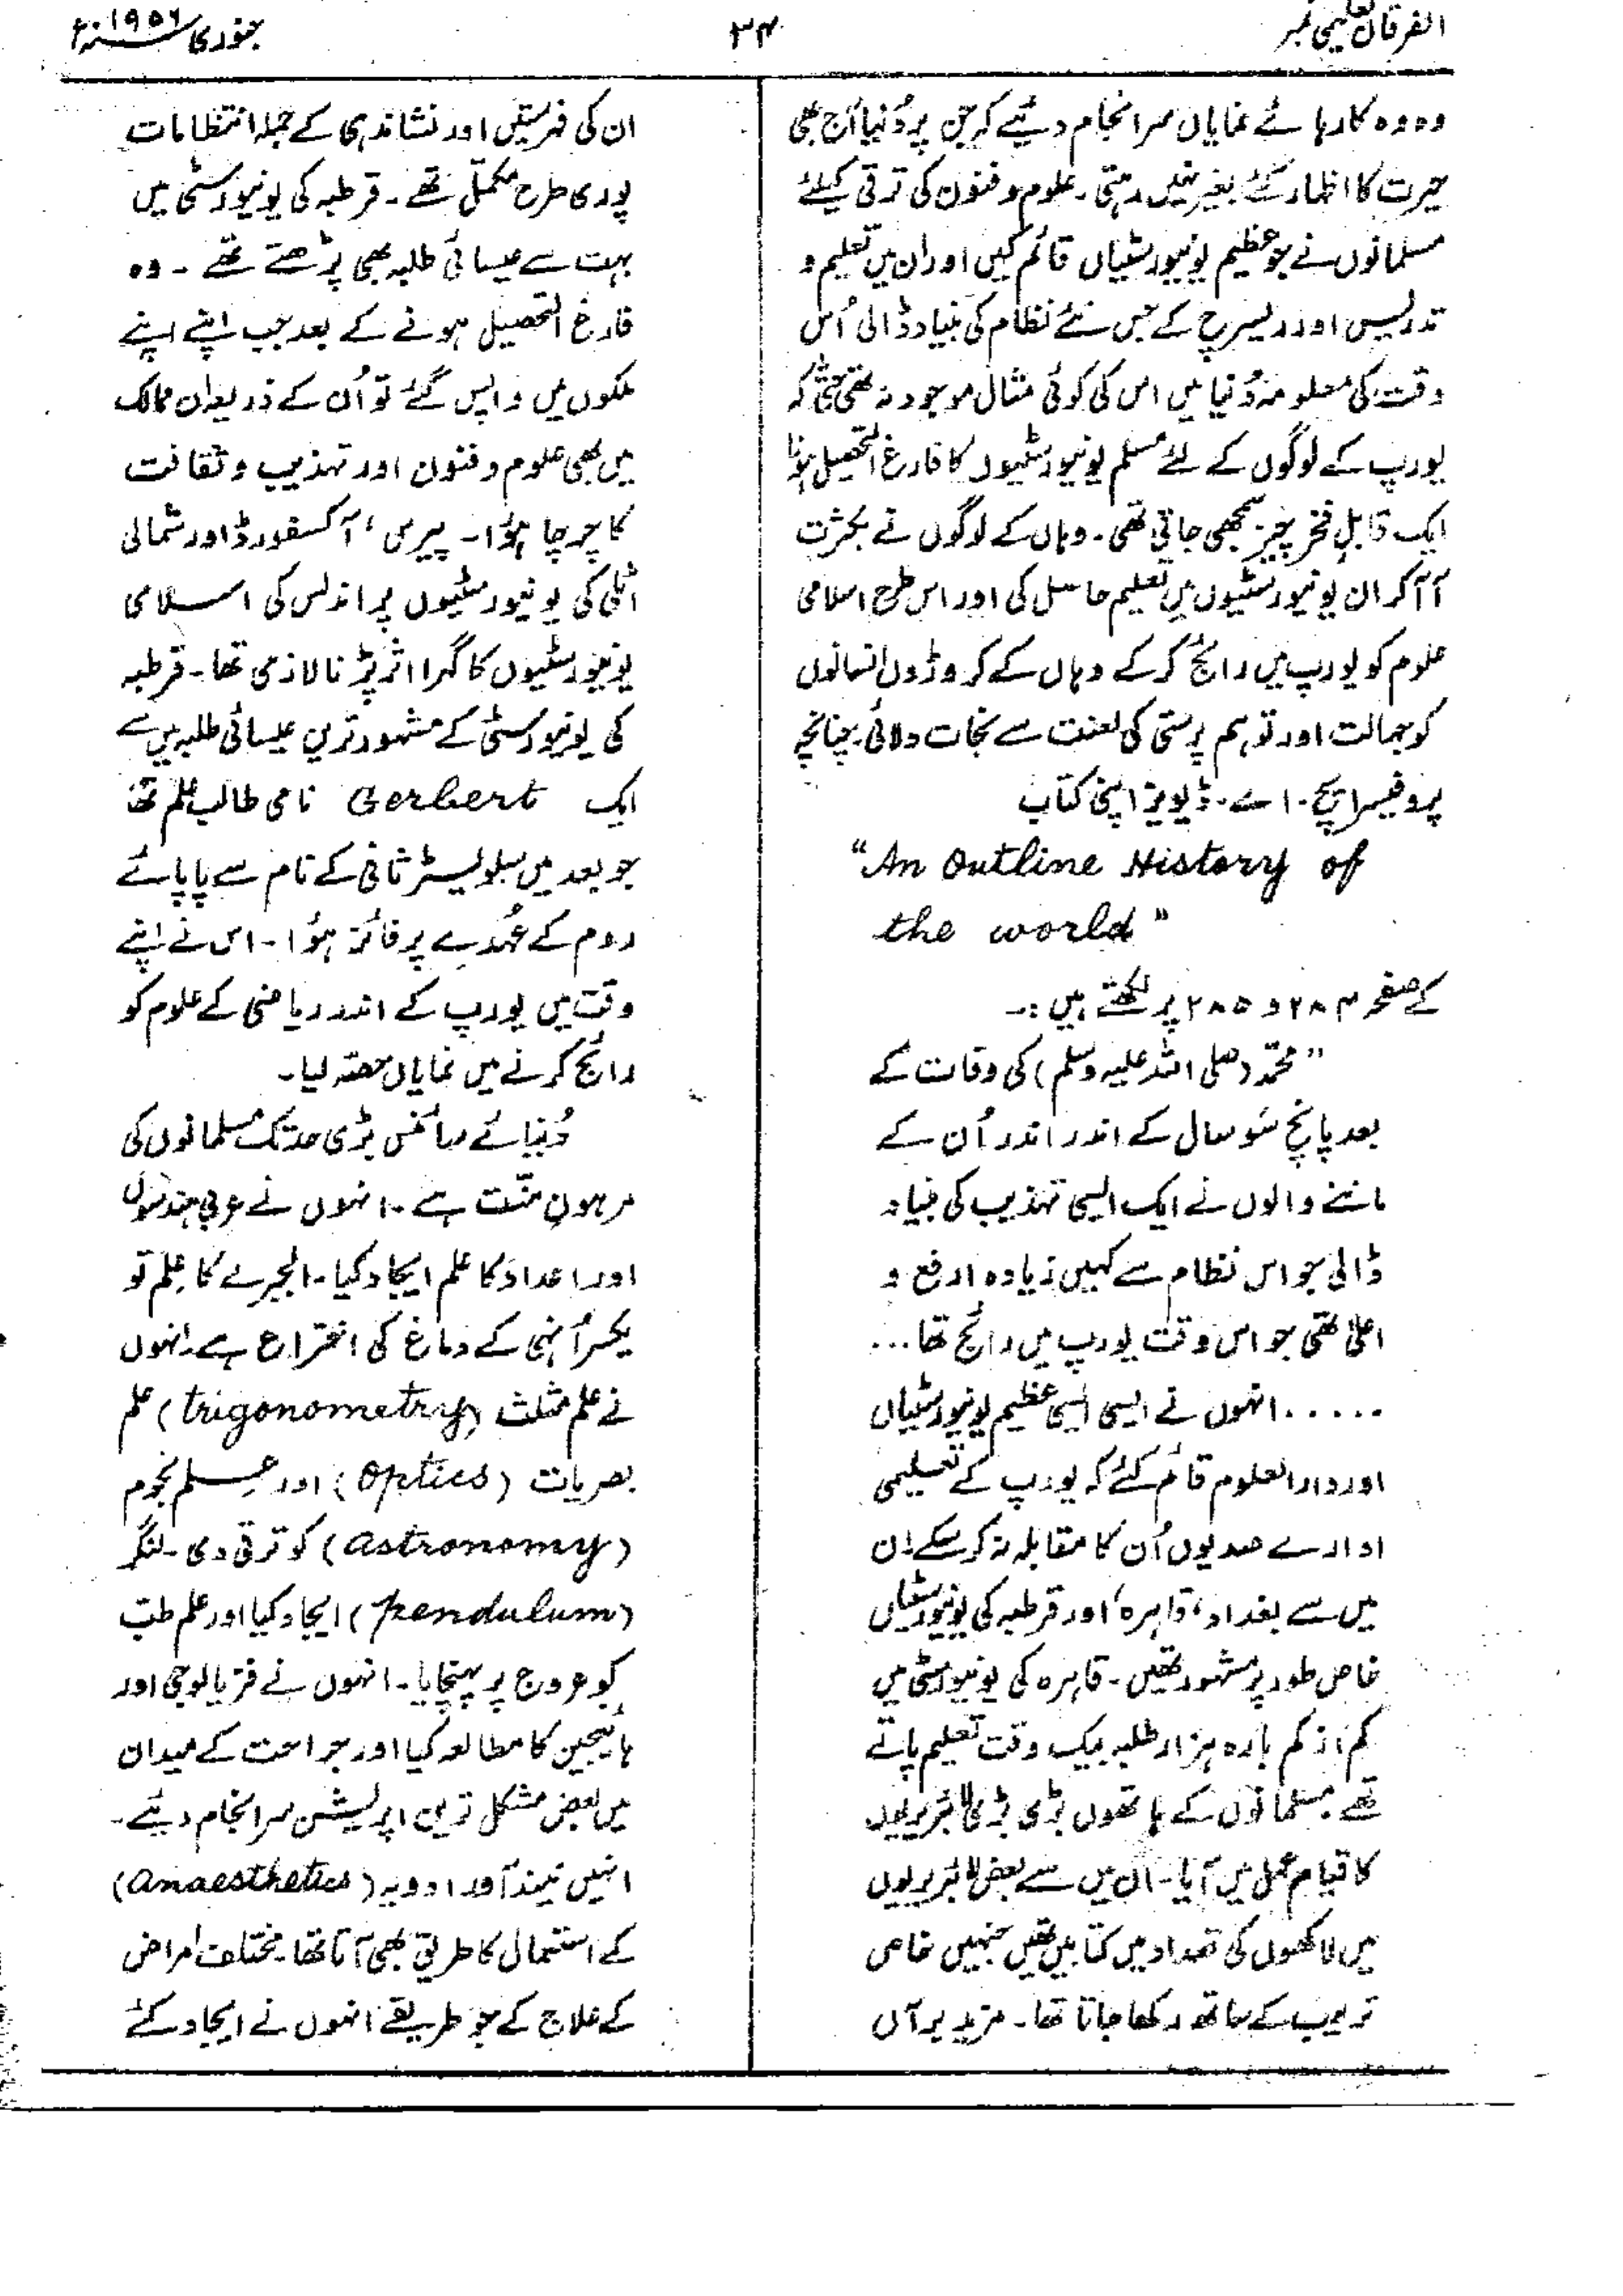 الفرقان تعلیمی نمبر
۳۴
جنوری ۱۹۵۶ء
وہ وہ کارہائے نمایاں سرانجام دیئے کہ جن پر دُنیا آج بھی
حیرت کا اظہار کئے بغیر نہیں رہتی۔ علوم و فنون کی ترقی کیلئے
مسلمانوں نے جو عظیم یونیورسٹیاں قائم کیں اور ان میں تعلیم و
تدریس اور ریسرچ کے جس نئے نظام کی بنیاد ڈالی اُس
وقت کی معلومہ دُنیا میں اس کی کوئی مثال موجود نہ تھی حتیٰ کہ
یورپ کے لوگوں کے لئے مسلم یونیورسٹیوں کا فارغ التحصیل ہونا
ایک قابلِ فخر چیز سمجھی جاتی تھی۔ وہاں کے لوگوں نے بکثرت
آ آ کر ان یونیورسٹیوں میں تعلیم حاصل کی اور اس طرح اسلامی
علوم کو یورپ میں رائج کر کے وہاں کے کروڑوں انسانوں
کو جہالت اور توہم پرستی کی لعنت سے نجات دلائی۔ چنانچہ
پروفیسر ایچ۔ اے۔ ڈیویز اپنی کتاب
"An Outline History of
the world"
کے صفحہ ۲۸۴ و ۲۸۵ پر لکھتے ہیں :۔
"محمدؐ (صلی اللہ علیہ وسلم) کی وفات کے
بعد پانچ سَو سال کے اندر اندر اُن کے
ماننے والوں نے ایک ایسی تہذیب کی بنیاد
ڈالی جو اس نظام سے کہیں زیادہ ارفع و
اعلیٰ تھی جو اس وقت یورپ میں رائج تھا...
..... انہوں نے ایسی ایسی عظیم یونیورسٹیاں
اور دارالعلوم قائم کئے کہ یورپ کے تعلیمی
ادارے صدیوں اُن کا مقابلہ نہ کر سکے۔ ان
میں سے بغداد، قاہرہ، اور قرطبہ کی یونیورسٹیاں
خاص طور پر مشہور تھیں۔ قاہرہ کی یونیورسٹی میں
کم از کم بارہ ہزار طلبہ بیک وقت تعلیم پاتے
تھے۔ مسلمانوں کے ہاتھوں بڑی بڑی لائبریریوں
کا قیام عمل میں آیا۔ ان میں سے بعض لائبریریوں
میں لاکھوں کی تعداد میں کتابیں تھیں جنہیں خاص
ترتیب کے ساتھ رکھا جاتا تھا۔ مزید برآں
ان کی فہرستیں اور نشاندہی کے جملہ انتظامات
پوری طرح مکمل تھے۔ قرطبہ کی یونیورسٹی میں
بہت سے عیسائی طلبہ بھی پڑھتے تھے ۔ وہ
فارغ التحصیل ہونے کے بعد جب اپنے اپنے
ملکوں میں واپس گئے تو اُن کے ذریعہ ان ممالک
میں بھی علوم و فنون اور تہذیب و ثقافت
کا چرچا ہؤا۔ پیرس، آکسفورڈ اور شمالی
اٹلی کی یونیورسٹیوں پر اندلس کی اسلامی
یونیورسٹیوں کا گہرا اثر پڑنا لازمی تھا۔ قرطبہ
کی یونیورسٹی کے مشہور ترین عیسائی طلبہ میں سے
ایک Gerbert نامی طالب علم تھا
جو بعد میں سلویسٹر ثانی کے نام سے پاپائے
روم کے عُہدے پر فائز ہؤا۔ اس نے اپنے
وقت میں یورپ کے اندر ریاضی کے علوم کو
رائج کرنے میں نمایاں حصّہ لیا۔
دُنیائے سائنس بڑی حد تک مسلمانوں کی
مرہونِ منّت ہے ۔ انہوں نے عربی ہندسوں
اور اعداد کا علم ایجاد کیا۔ الجبرے کا عِلم تو
یکسر اُنہی کے دماغ کی اختراع ہے۔ انہوں
نے علم مثلث (trigonometry) علم
بصریات (optics) اور علم نجوم
(astronomy) کو ترقی دی۔ لنگر
(pendulum) ایجاد کیا اور علم طبّ
کو عروج پر پہنچایا۔ انہوں نے فزیالوجی اور
ہائیجین کا مطالعہ کیا اور جراحت کے میدان
میں بعض مشکل ترین اپریشن سرانجام دیئے۔
انہیں نیند آور ادویہ (Anaesthetics)
کے استعمال کا طریق بھی آتا تھا۔ مختلف امراض
کے علاج کے جو طریقے انہوں نے ایجاد کئے